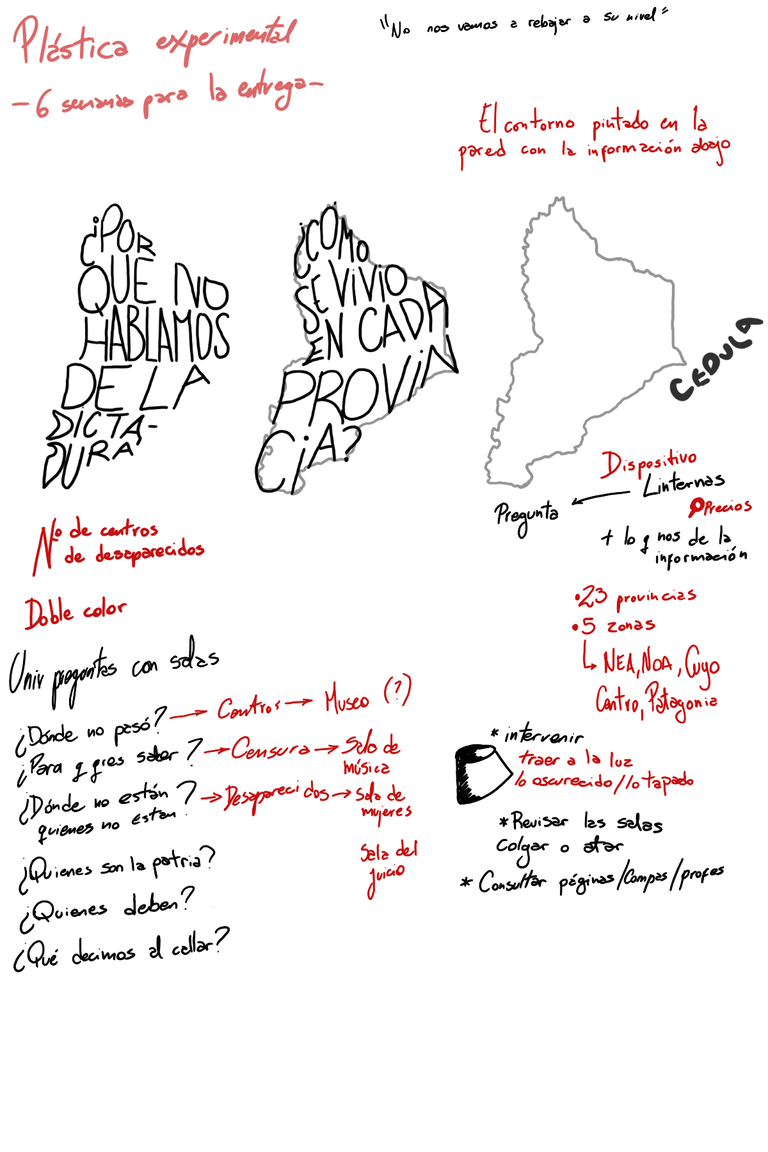 Plástica experimental
- 6 semanas para la entrega -
"No nos vamos a rebajar a su nivel"
El contorno pintado en la
pared con la información abajo
¿POR
QUE NO
HABLAMOS
DE LA
DICTA-
DURA
¿COMO
SE VIVIO
EN CADA
PROVIN
CIA?
CEDULA
Dispositivo
Linternas
Pregunta
Precios
+ lo q nos de la
información
Nº de centros
de desaparecidos
Doble color
•23 provincias
•5 zonas
NEA, NOA, Cuyo
Centro, Patagonia
Unir preguntas con salas
¿Dónde no pasó? → Centros → Museo (?)
¿Para q qres saber? → Censura → Sala de
música
¿Dónde no están? → Desaparecidos → Sala de
mujeres
quienes no estan
Sala del
juicio
¿Quienes son la patria?
¿Quienes deben?
¿Qué decimos al callar?
* intervenir
traer a la luz
lo oscurecido//lo tapado
*Revisar las salas
Colgar o atar
* Consultar páginas/Compas/profes